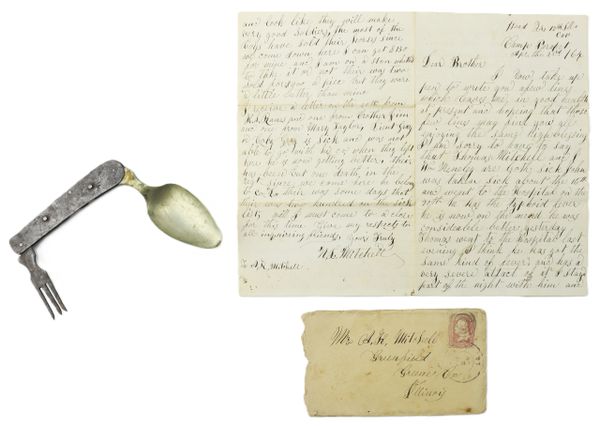 and look like they will make
very good soldiers, the most of the
boys have sold their horses since
we come down here I can get $130
for mine and I am on a stan whether
to take it or not their was two
sold for $140 a piece but they were
a little better than mine
from
and one from
one from Mary Taylor, Aunt
is sick and was not
able to go with his co when they left
here he is now getting better, their
has been but one death in the
since we came here he belong
to Co their was some days that
their was two hundred on the sick
list, well I must come to a close
for this time Give my respects to
all inquiring friends, Yours Truly
Mitchell
To A. K. Mitchell
Head Qrs
Cav
Camp
Apr the 2nd /64
Dear Brother
I now take up
pen to write you a few lines
which leaves me in good health
at present and hoping that these
few lines may find you all
enjoying the same
I am sorry to have to say
that Thomas Mitchell and J.
W. are both sick John
was taken sick about the
and went to the hospital on the
he has the typhoid fever
he is now on the mend he was
considerable better yesterday
Thomas went to the hospital last
evening I think he has got the
same kind of fever and has a
very severe attack of it I stay
part of the night with him and
Mr A. K. Mitchell
Greenfield
Greene Co
Illinois